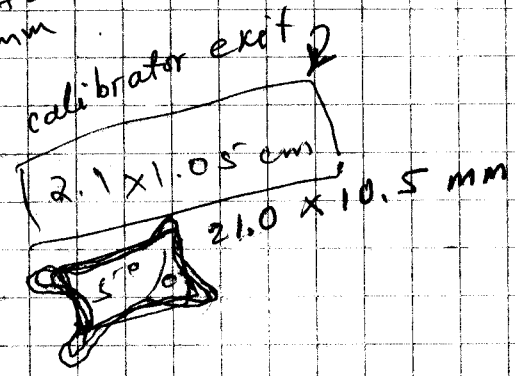 mm
calibrator exit
2.1 x 1.05 cm
21.0 x 10.5 mm